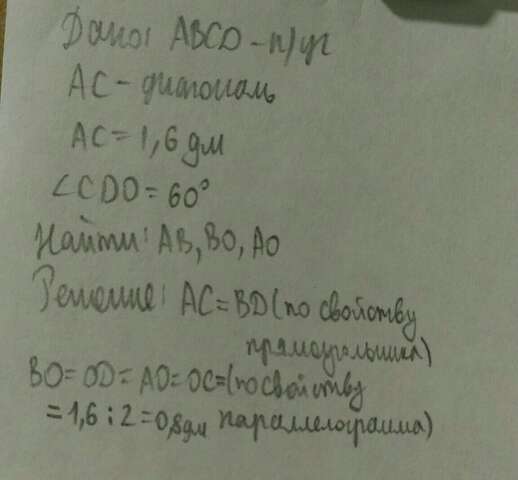 Дано: ABCD - п/уг
AC - диагональ
AC = 1,6 дм
∠CDO = 60°
Найти: AB, BO, AO
Решение: AC = BD (по свойству
прямоугольника)
BO = OD = AO = OC = (по свойству
= 1,6 : 2 = 0,8дм параллелограмма)